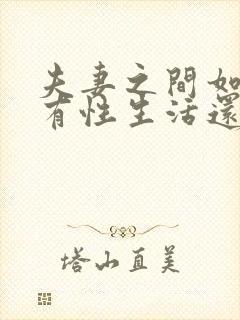 夫妻之間如
有性生活還
塔山直美